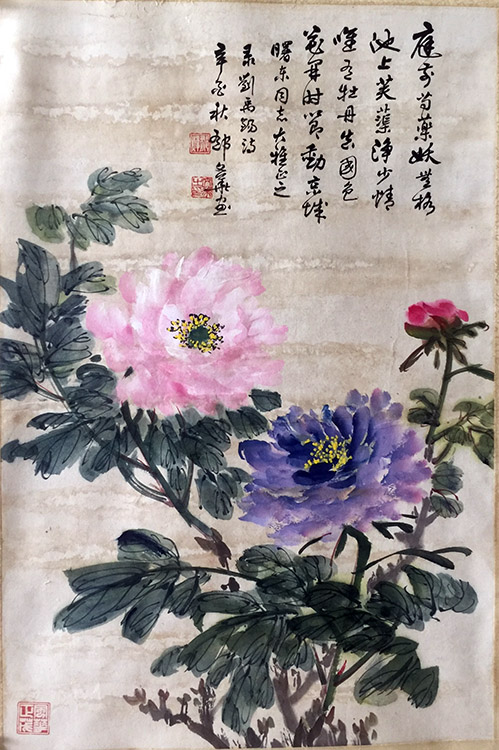 庭前芍藥妖無格
池上芙蕖淨少情
唯有牡丹真國色
花開時節動京城
曙东同志大雅正之
录劉禹锡诗
辛酉秋鄒
画